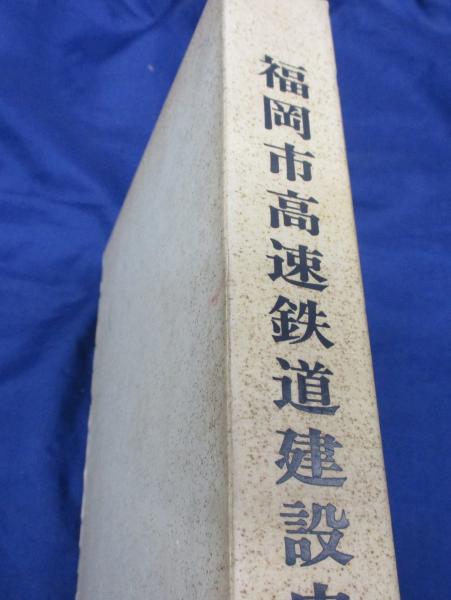 福岡市高速鉄道建設